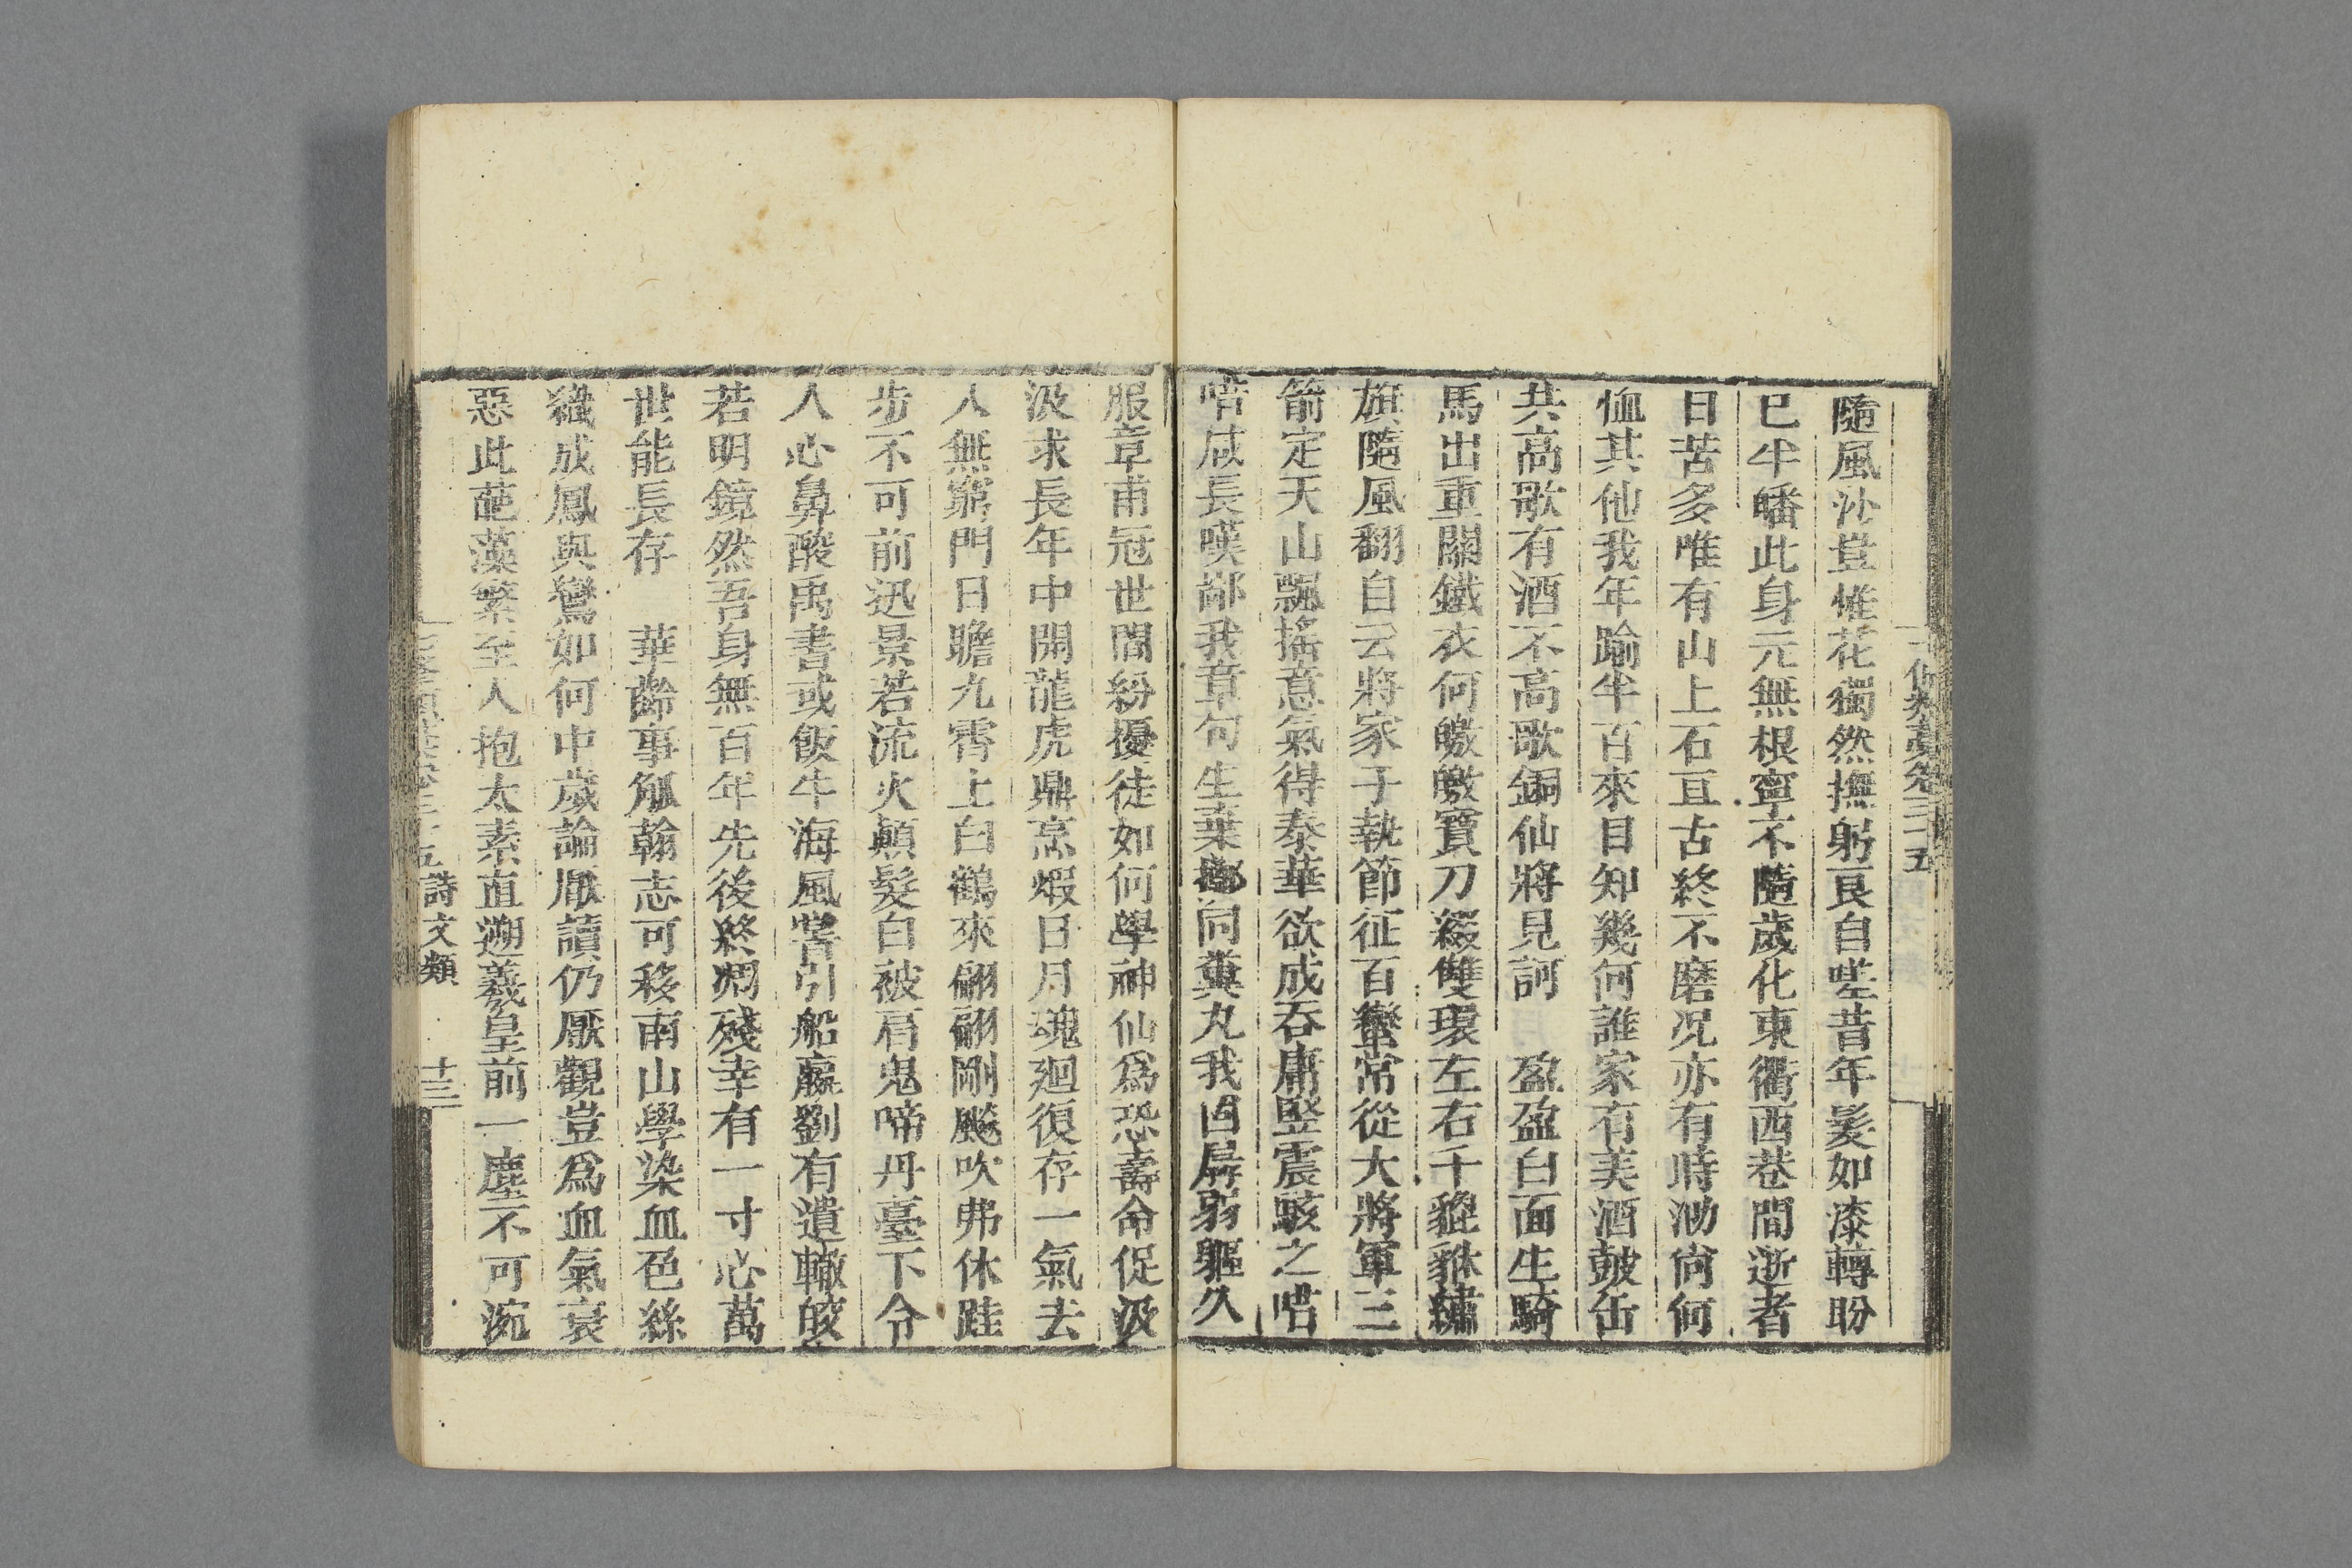 隨風沙豈惟花獨然撫躬良自嗟昔年髮如漆轉盼
已半皤此身元無根寧不隨歲化東衢西巷間逝者
日苦多唯有山上石亘古終不磨况亦有時泐尚何
恤其他我年踰半百來日知幾何誰家有美酒鼓缶
共高歌有酒不高歌銅仙將見訶　盈盈白面生騎
馬出重關鐵衣何皦皦寶刀綴雙環左右千貔貅繡
旗隨風翻自云將家子執節征百蠻常從大將軍三
箭定天山飄搖意氣得泰華欲成吞庸竪震駭之唶
唶咸長嘆鄙我章句生棄擲同糞丸我固孱弱軀久
服章甫冠世間紛擾徒如何學神仙爲恐壽命促汲
汲求長年中開龍虎鼎烹煆日月魂廻復存一氣去
人無窮門日瞻九霄上白鶴來翩翩剛飈吹弗休跬
步不可前迅景若流火顛髮白被肩鬼啼丹臺下令
人心鼻酸禹書或飯牛海風嘗引船嬴劉有遺轍皎
若明鏡然吾身無百年先後終凋殘幸有一寸心萬
世能長存　華齡事觚翰志可移南山學染血色絲
織成鳳與鸞如何中歲論厭讀仍厭觀豈爲血氣衰
惡此葩藻繁至人抱太素直遡羲皇前一塵不可涴
詩文類
十三